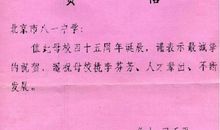 贺
北京市八一中学:
值此母校四十五周年诞辰,谨表示最诚挚
的祝贺,遥祝母校桃李芬芳、人才辈出、不断
发展。